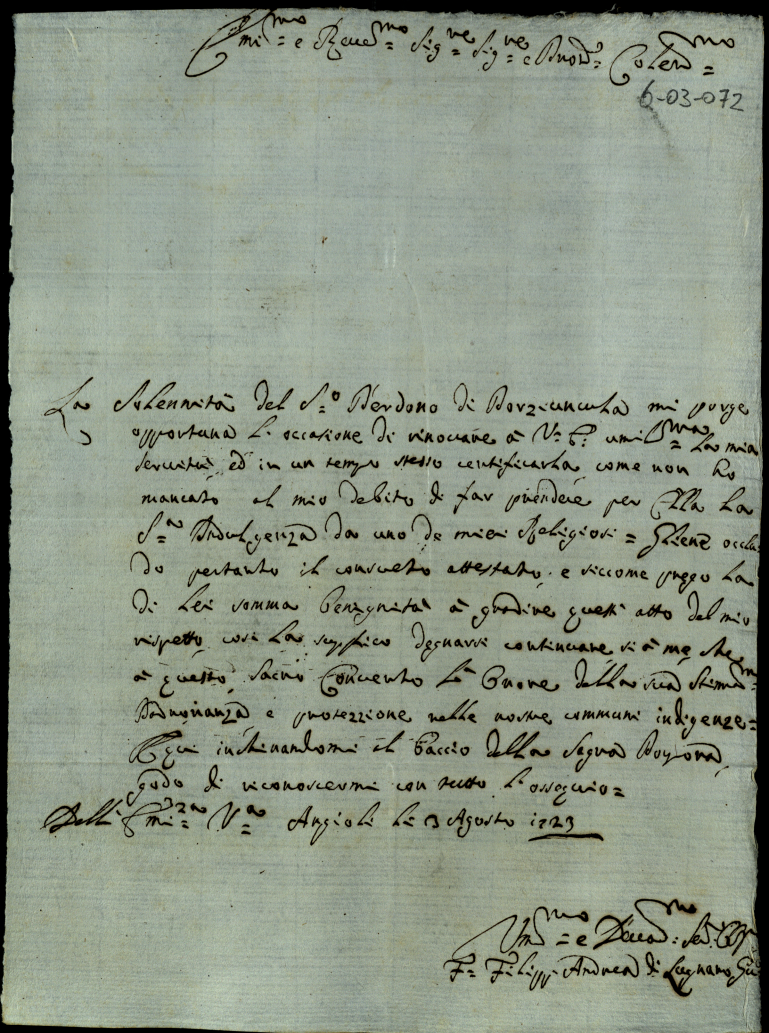 Emi:mo e Reved:mo Sig:re Sig:re e Pron: Colend:mo
6-03-072
La Solennità del S:o Perdono di Porziuncula mi porge
opportuna l'occasione di rinovare à V: E: umil:ma la mia
servitù, ed in un tempo stesso certificarla, come non hò
mancato al mio debito di far prendere per Ella la
S:a Indulgenza da uno de miei Religiosi = Gliene occlu
do pertanto il consueto attestato, e siccome prego la
di Lei somma benignità à gradire questi atto del mio
rispetto, così la supplico degnarsi continuare, sì à me, che
à questo Sacro Convento l' onore della sua Stima:
Padronanza e protezzione nelle nostre communi indigenze=
E qui inchinandomi al baccio della Sagra Porpora,
godo di riconoscermi con tutto l'ossequio=
Dell' Emi:za V:a Angioli li 3 Agosto 1723
Um:mo e Devot:mo Ser:
F: Filipp Andrea di Lugnano